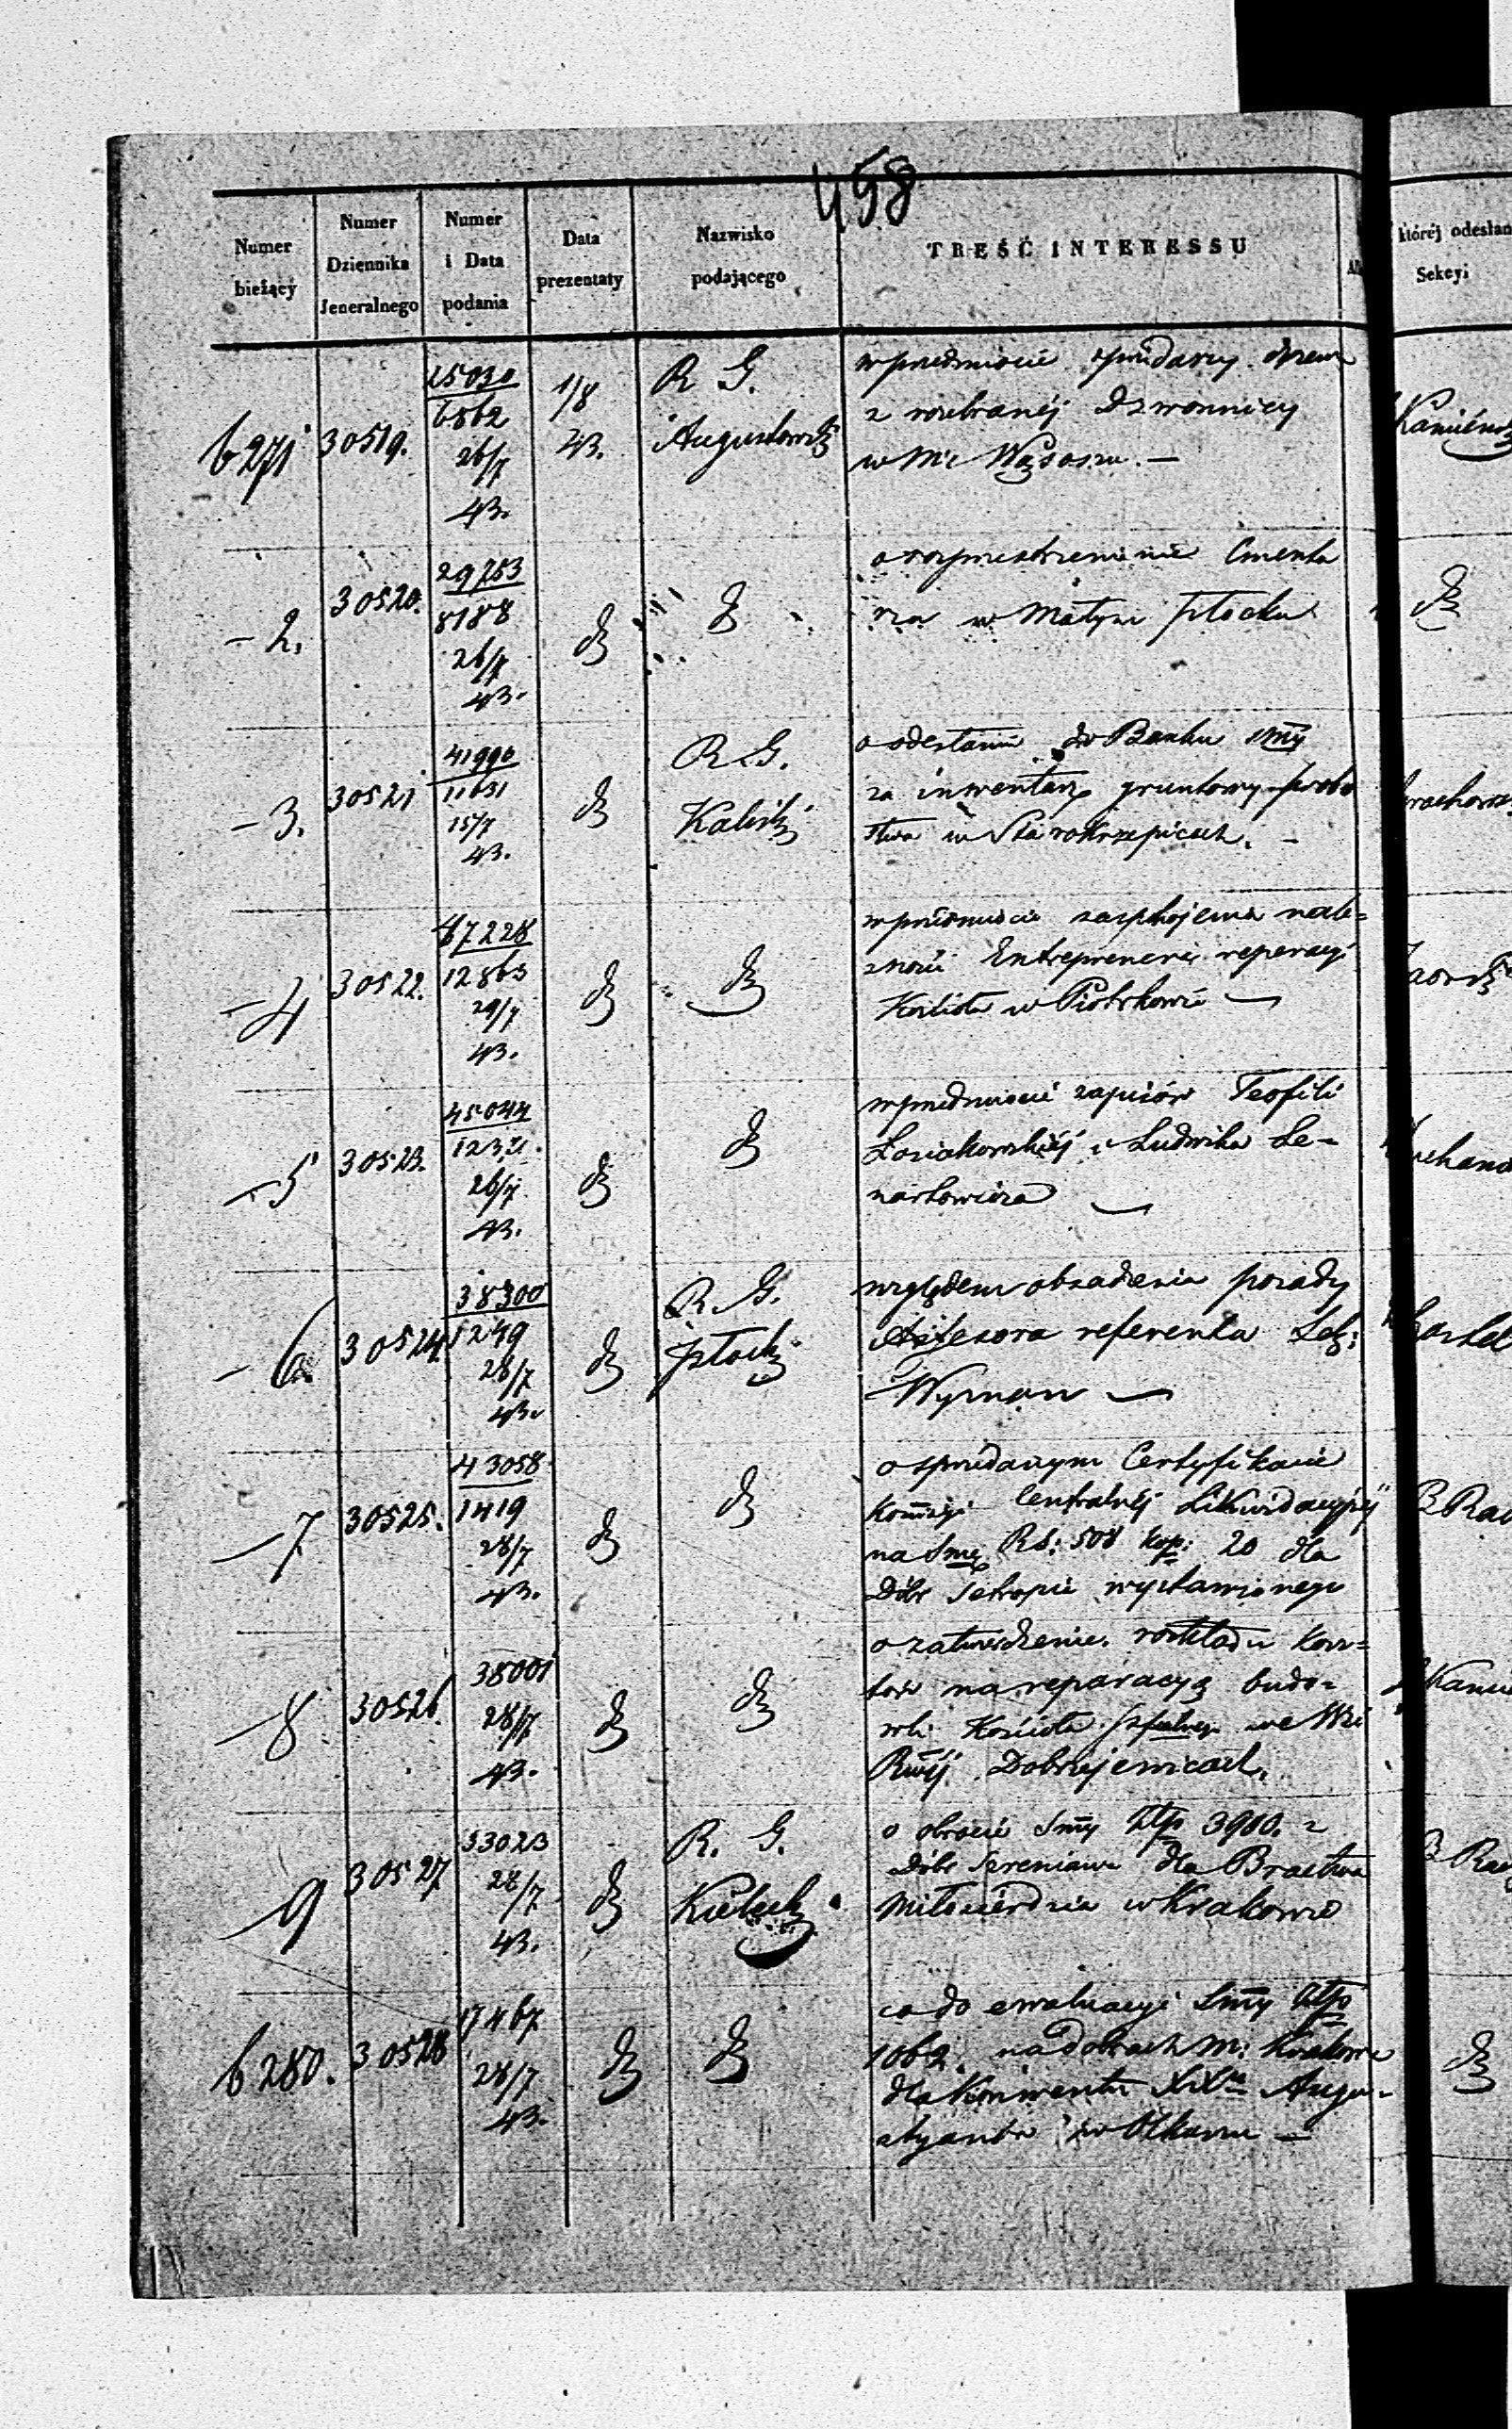 458
Numer bieżący
Numer Dziennika Jeneralnego
Numer i Data podania
Data prezentaty
Nazwisko podającego
TREŚĆ INTERESSU
któréj odesłan
Sekcyi
6271
30519.
15030
6862
26/7
43.
1/8
43.
R G.
Augustowski
w przedmiocie sprzedaży drzewa
z rozebranéj Dzwonnicy
w Mcie Wąsoszu. —
– 2.
30520.
29753
8188
26/7
43.
o rozprzestrzenienie Cmenta
rza w Małym Płocku
– 3.
30521
41990
11631
15/7
43.
R. G.
Kaliski
o odesłaniu do Banku Smy
za inwentarz gruntowy probo
stwa w Starokrzepicach. –
– 4
30522.
67228
12863
29/7
43.
w przedmiocie zaspokojenia nale=
żności Entreprenera reperacyi
Kościoła w Piotrkowie —
– 5
30523.
45044
26/7
43.
w przedmiocie zapisów Teofili
Łosiakowskiéj i Ludwika Le-
nartowicza —
– 6
30524.
38300
1249
28/7
43.
R. G.
Płocki
względem obsadzenia posady
Assesora referenta Sek:
Wyznan —
– 7
30525.
43058
1419
28/7
43.
o sprzedanym Certyfikacie
Kommissyi Centralnéj Likwidacyjnéj
na Smę Rs: 508 kop: 20 dla
Dóbr Setropie wystawionego
– 8
30526.
38001
28/7
43.
o zatwierdzenie rozkładu kosz=
tów na reparacyą budo=
wli Kościoła we Wsi
Rwéj Dobrzejewicach.
9
30527
53023
28/7
43.
R. G.
Kielecki
o obrocie Smy Złp 3900.
Dóbr Sereniawa dla Bractwa
Miłosierdzia w Krakowie
6280.
30528
17467
28/7
43.
co do ewaluacyi Smy Złp
1062. na dobrach m: Krakowa
dla Konwentu XXży Augu-
styanów w Olkuszu —